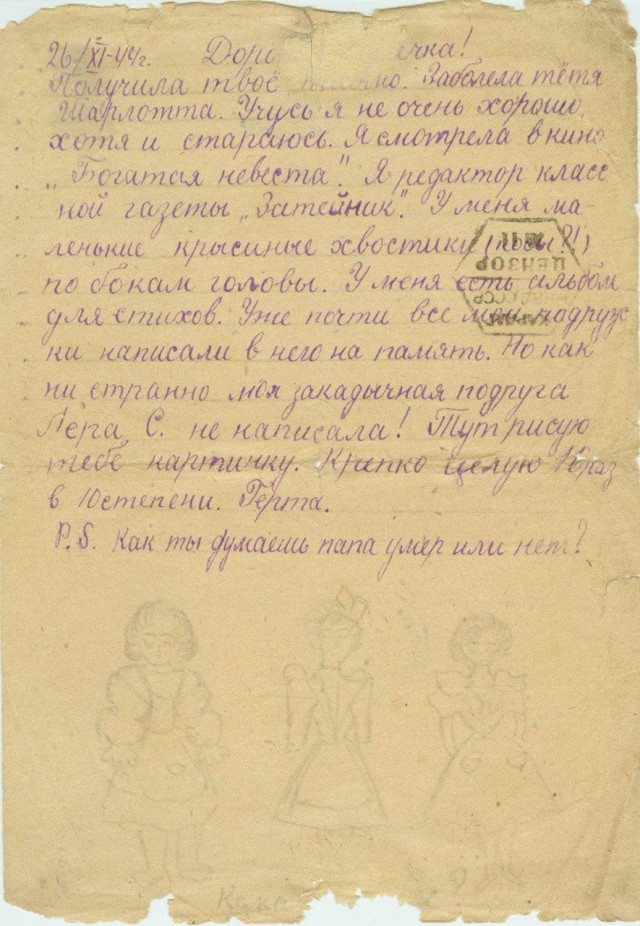 26/XI-44г. Доро ечка!
Получила твоё письмо. Заболела тётя
Шарлотта. Учусь я не очень хорошо,
хотя и стараюсь. Я смотрела в кино
„Богатая невеста". Я редактор класс
ной газеты „Затейник". У меня ма-
ленькие крысиные хвостики (косы?!)
по бокам головы. У меня есть альбом
для стихов. Уже почти все мои подруж
ки написали в него на память. Но как
ни странно моя закадычная подруга
Лера С. не написала! Тут рисую
тебе картинку. Крепко целую 10 раз
в 10 степени. Герта.
P.S. Как ты думаешь папа умер или нет?
ЦЕНЗОР